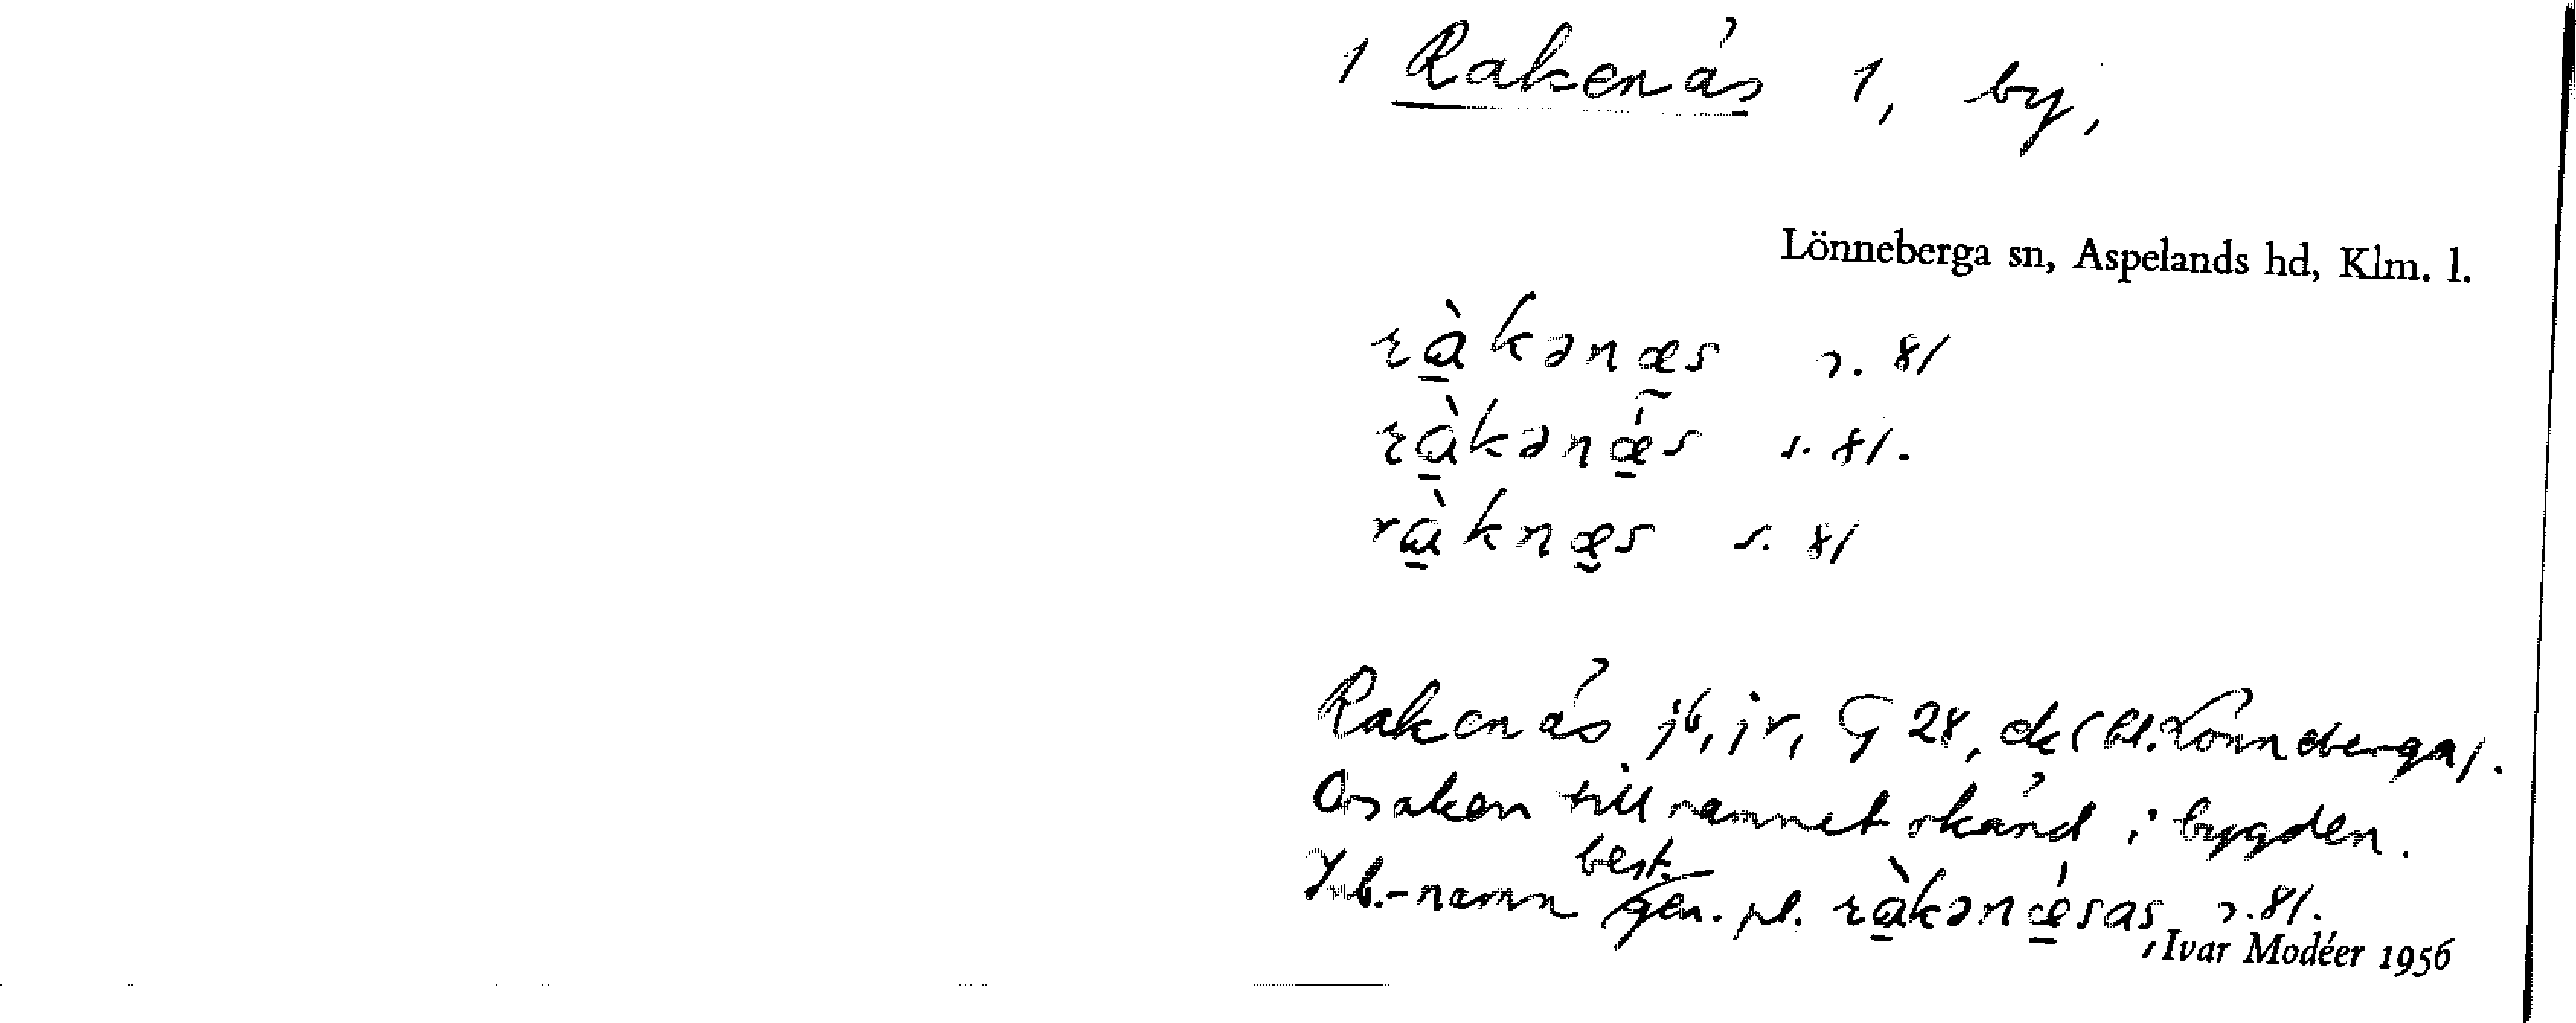 1 Rakenäs 1, by,
Lönneberga sn, Aspelands hd, Klm. l.
ràkənæs s. 81
ràkənǽs s. 81.
ràknæs s. 81
Rakenäs jb, jr, G 28, ek (bl. Lönneberga).
Orsaken till namnet okänd i bygden.
best.
Inb.-namn gen. pl. ràkənǽsas, s. 81.
Ivar Modéer 1956